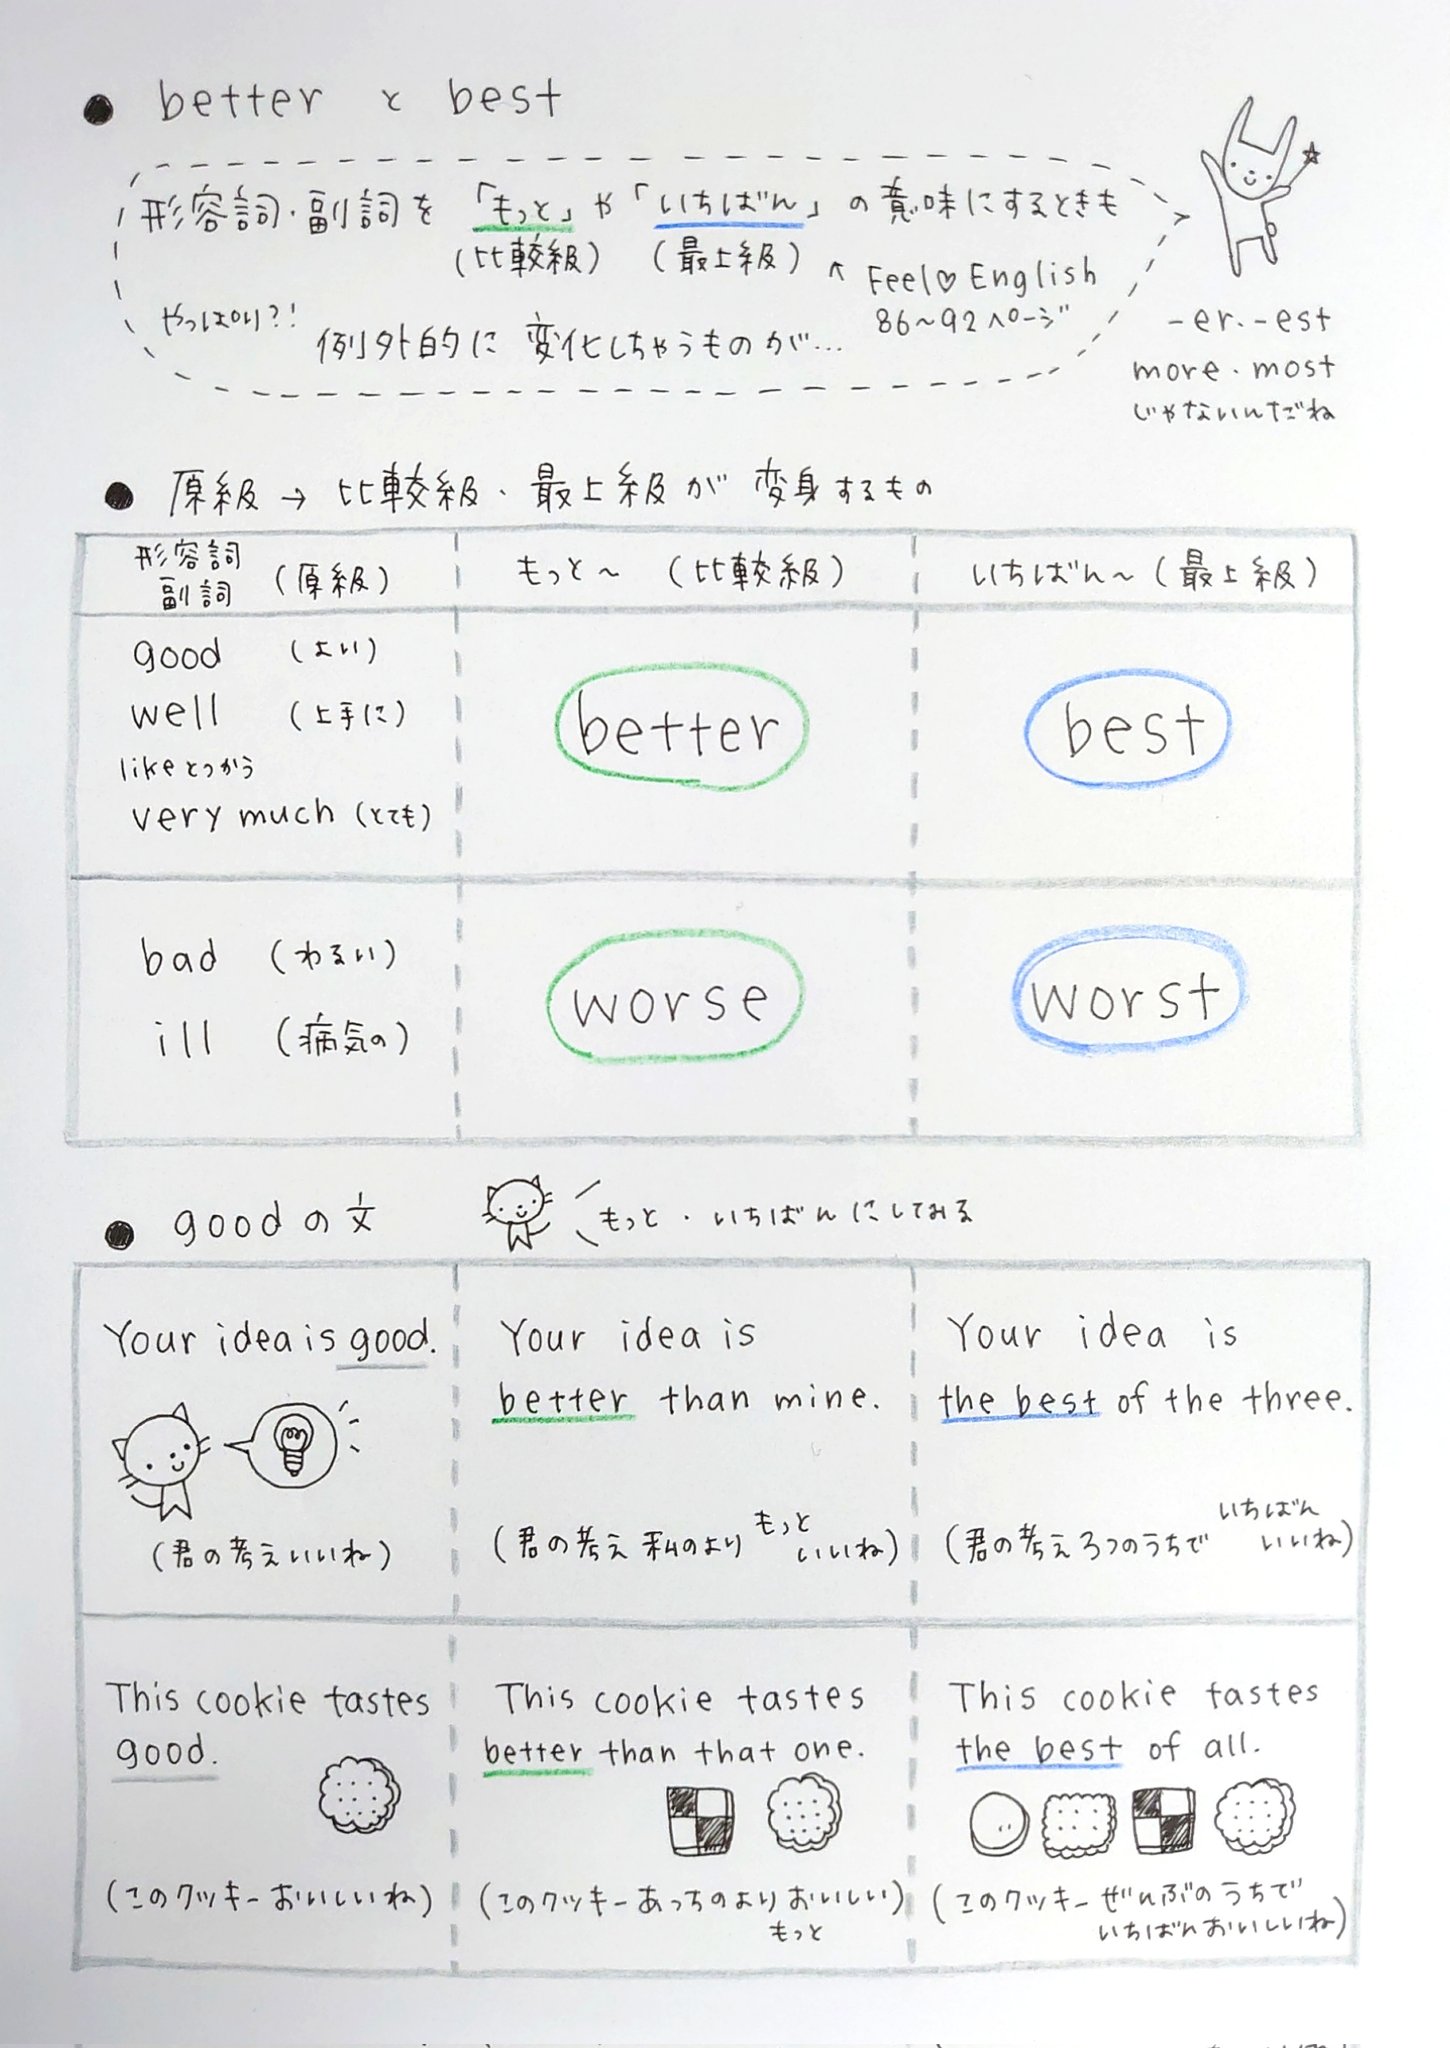 ● better と best
形容詞・副詞を 「もっと」や「いちばん」の意味にするときも
(比較級) (最上級) ↖ Feel♡English
86〜92ページ
やっぱり?! 例外的に変化しちゃうものが…
-er.-est
more.most
じゃないんだね
● 原級→比較級・最上級が変身するもの
形容詞
副詞 (原級)
もっと〜 (比較級)
いちばん〜(最上級)
good (よい)
well (上手に)
likeとつかう
very much (とても)
better
best
bad (わるい)
ill (病気の)
worse
worst
● goodの文
もっと・いちばんにしてみる
Your idea is good.
(君の考えいいね)
Your idea is
better than mine.
(君の考え私のよりもっと
いいね)
Your idea is
the best of the three.
(君の考え3つのうちでいちばん
いいね)
This cookie tastes
good.
(このクッキーおいしいね)
This cookie tastes
better than that one.
(このクッキーあっちのよりおいしい)
もっと
This cookie tastes
the best of all.
(このクッキーぜんぶのうちで
いちばんおいしいね)